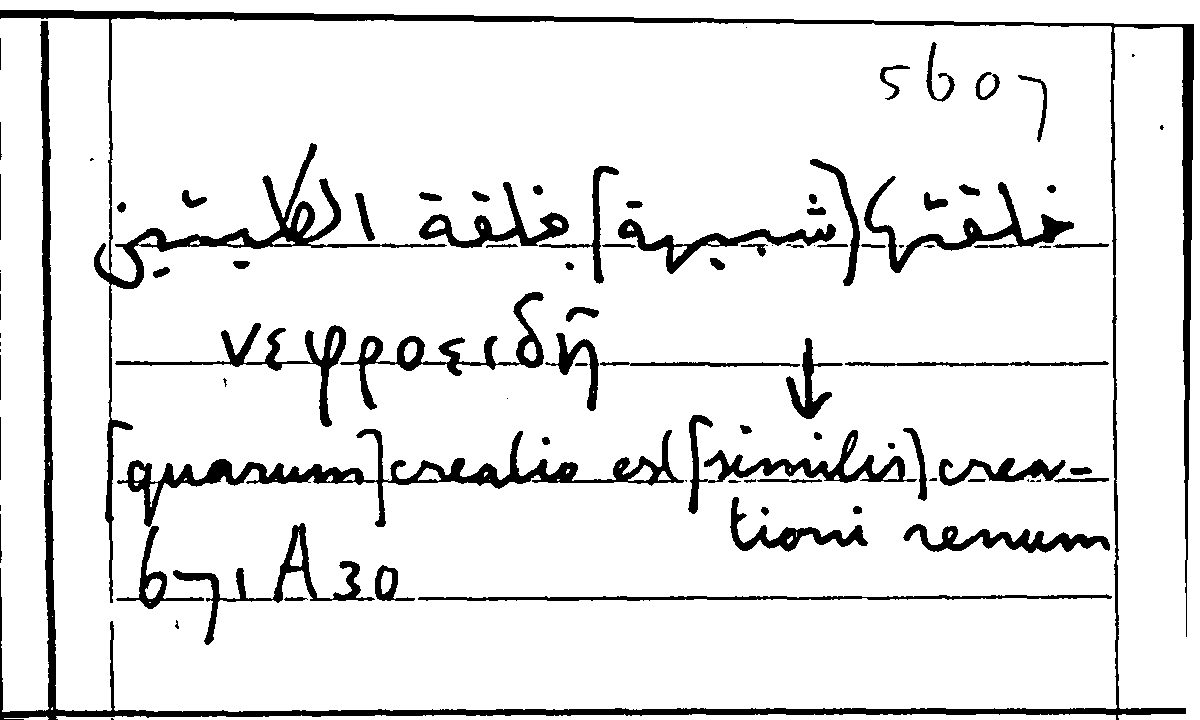 5607
خلقتها [شبيهة] بخلقة الكليتين
νεφροειδῆ ↓
[quarum] creatio est [similis] crea-
tioni renum
671 A 30